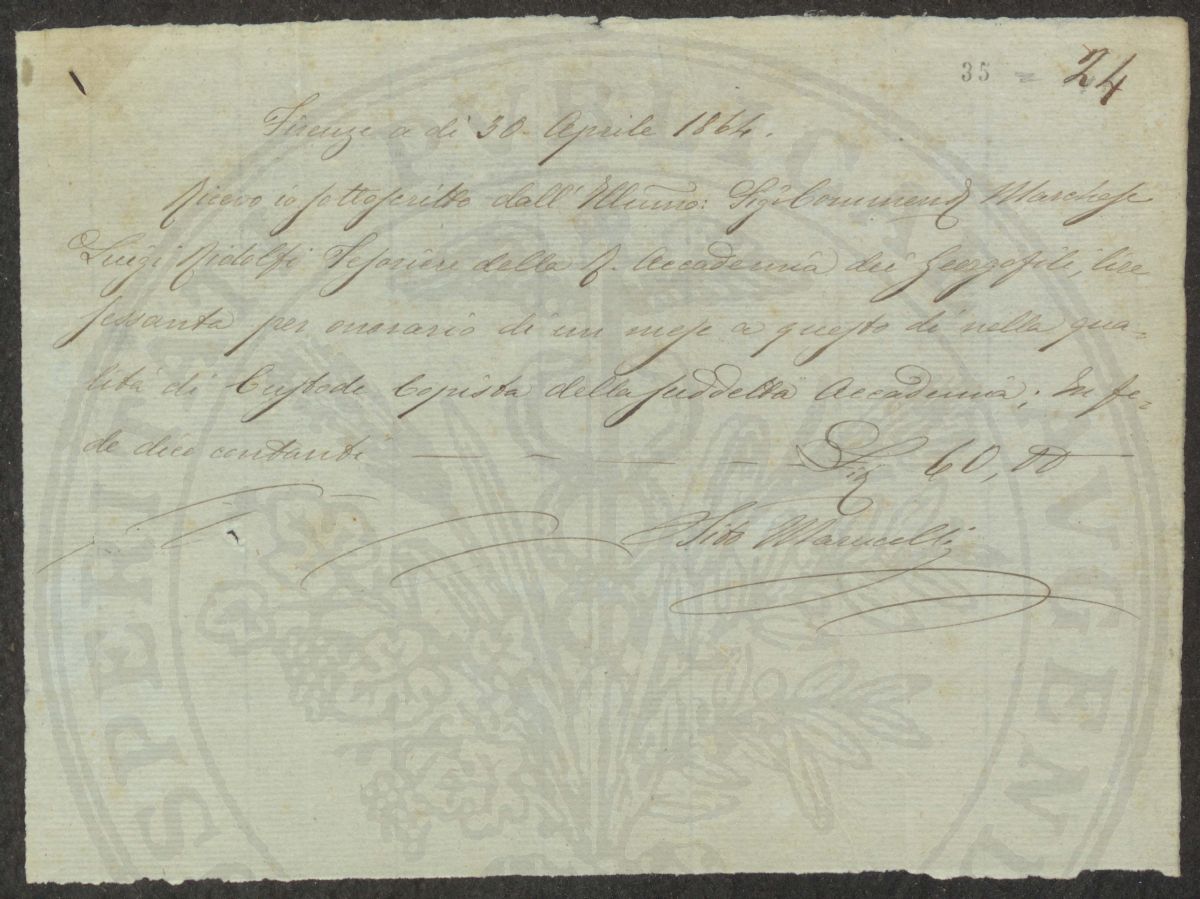 35 = 24
Firenze a dì 30 Aprile 1864.
Ricevo io sottoscritto dall' Illumo: Sig Commend Marchese
Luigi Ridolfi Tesoriere della R. Accademia dei Georgofili, lire
sessanta per onorario di un mese a questo dì nella qua-
lità di Custode Copista della suddetta Accademia; In fe-
de dico contanti — - — - — Lir 60,00
Marucelli
PUBLICAE
AUGENDAE
PROSPERITATI